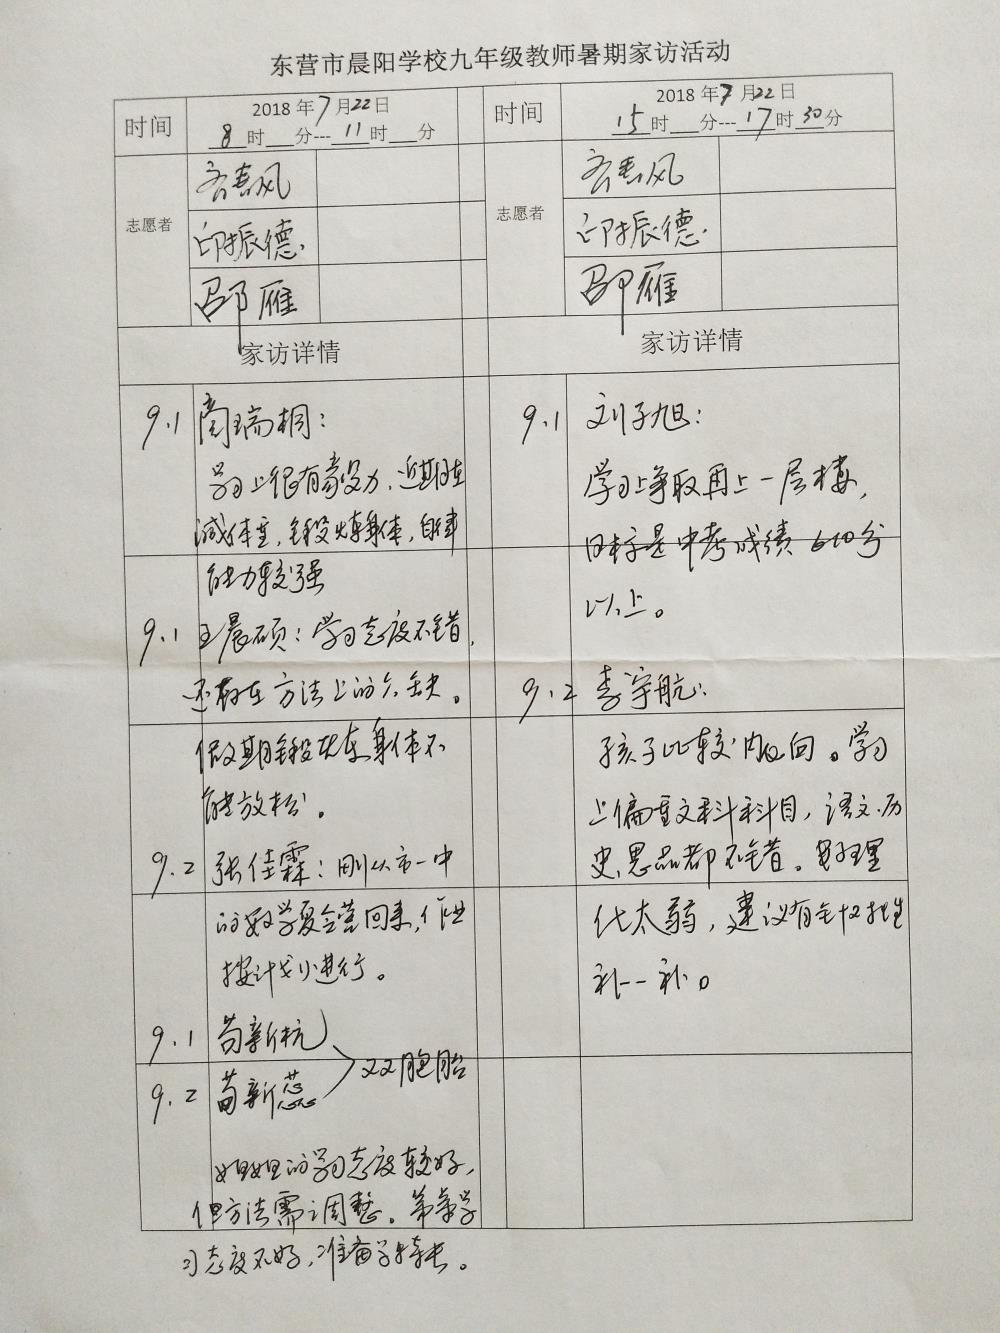 东营市晨阳学校九年级教师暑期家访活动
时间
2018 年 7 月 22 日
8 时 分---11 时 分
时间
2018 年 7 月 22 日
15 时 分---17 时 30 分
志愿者
春风
印振德
邵雁
志愿者
春风
印振德
邵雁
家访详情
家访详情
9.1 瑞桐：
学习上很有毅力，近期在
减体重，锻炼身体，自律
能力较强
9.1 王晨硕：学习态度不错，
还存在方法上的欠缺。
假期锻炼身体不
能放松。
9.2 张佳霖：刚从市一中
的数学夏令营回来，作业
按计划进行。
9.1 苟新杭
9.2 苟新蕊
双胞胎
姐姐的学习态度较好，
但方法需调整。弟弟学
习态度不好，准备学特长。
9.1 刘子旭：
学习上争取再上一层楼，
目标是中考成绩 610分
以上。
9.2 李宇航：
孩子比较内向。学习
上偏重文科科目，语文、历
史、思品都不错。数理
化太弱，建议有针对性
补一补。